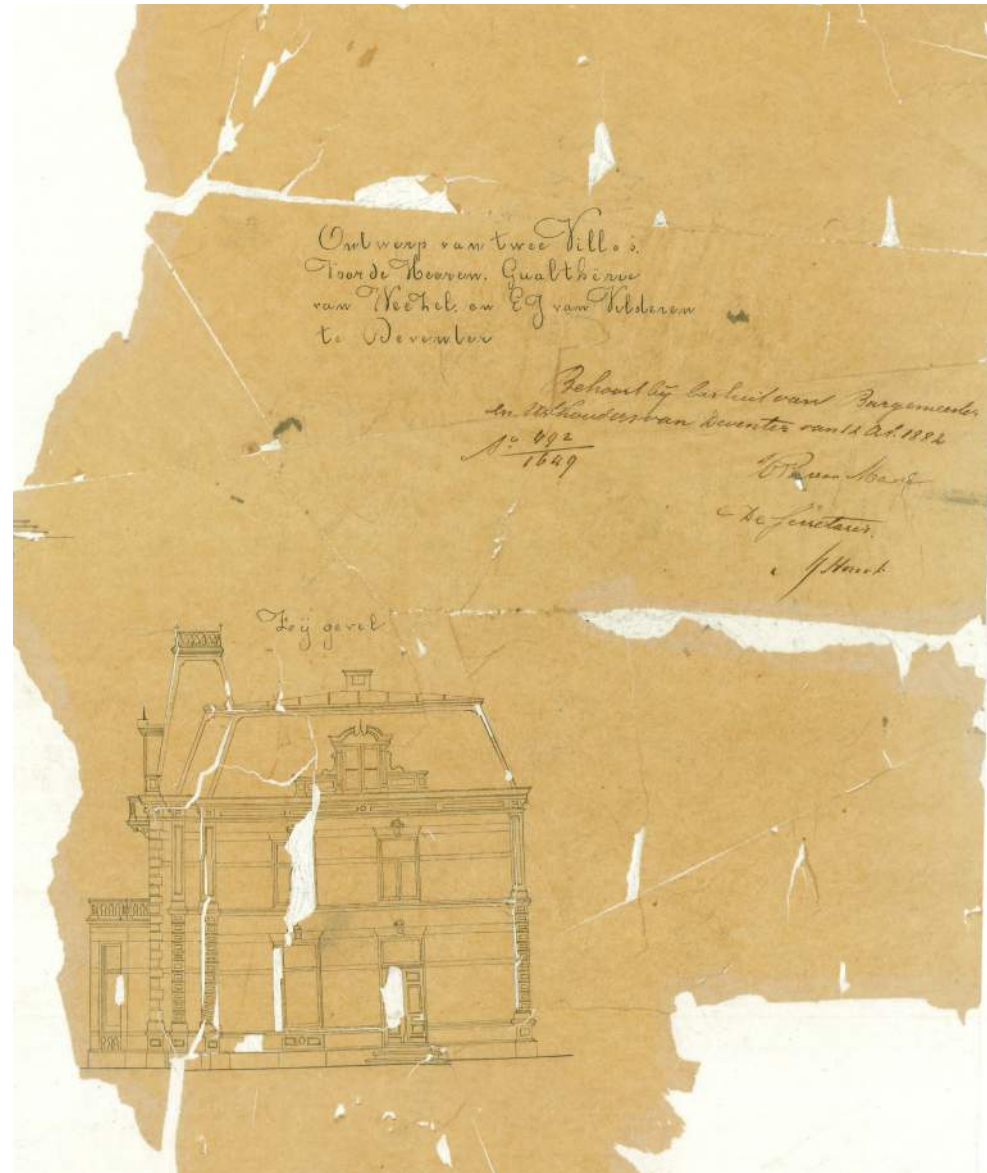 Ontwerp van twee Villa's.
Voor de Heeren. Gualthérie
van Weezel. en EG van Wilderen
te Deventer
Behoort bij besluit van Burgemeester
en Wethouders van Deventer van 12 Oct. 1882
No 492
1649
van
De Secretaris.
Zij gevel